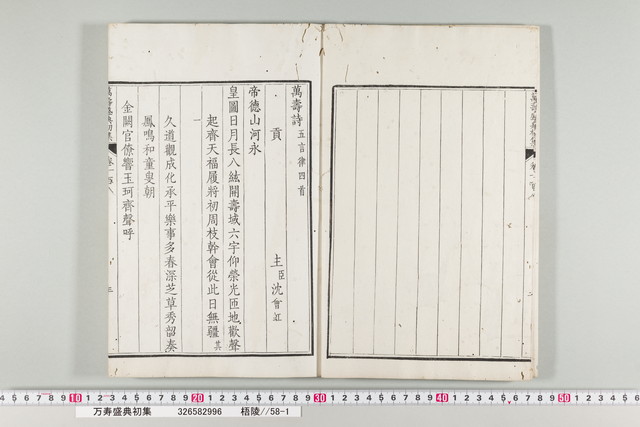 萬壽詩五言律四首
貢 主臣沈會江
帝德山河永
皇圖日月長八紘開壽域六宇仰榮光匝地歡聲
起齊天福履將初周枝幹會從此日無疆其
一
久道觀成化承平樂事多春深芝草秀韶奏
鳳鳴和童叟朝
金闕官僚響玉珂齊聲呼
万寿盛典初集 326582996 梧陵//58-1